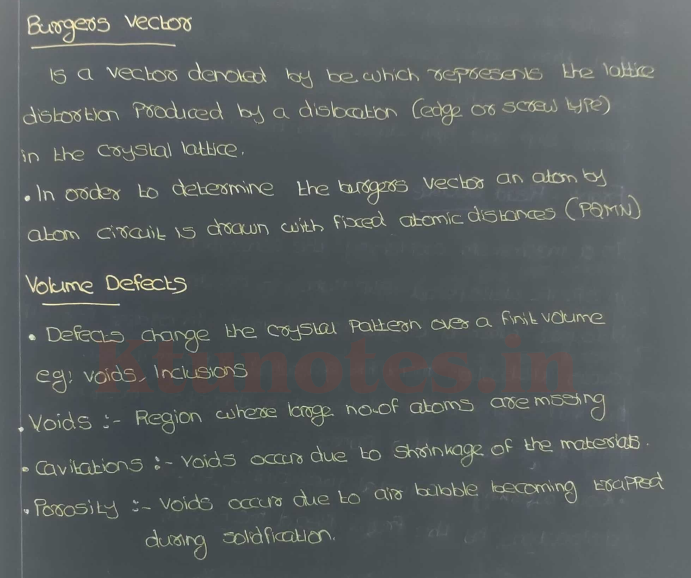 Burgers Vector
Is a vector denoted by be which represents the lattice
distortion produced by a dislocation (edge or screw type)
in the crystal lattice.
• In order to determine the burgers vector an atom by
atom circuit is drawn with fixed atomic distances (PQMN)
Volume Defects
• Defects change the crystal pattern over a finit volume
eg: voids, Inclusions
Ktunotes.in
• Voids :- Region where large no.of atoms are missing
• Cavitations :- Voids occur due to shrinkage of the materials.
• Porosity :- Voids occur due to air bubble becoming trapped
during solidfication.